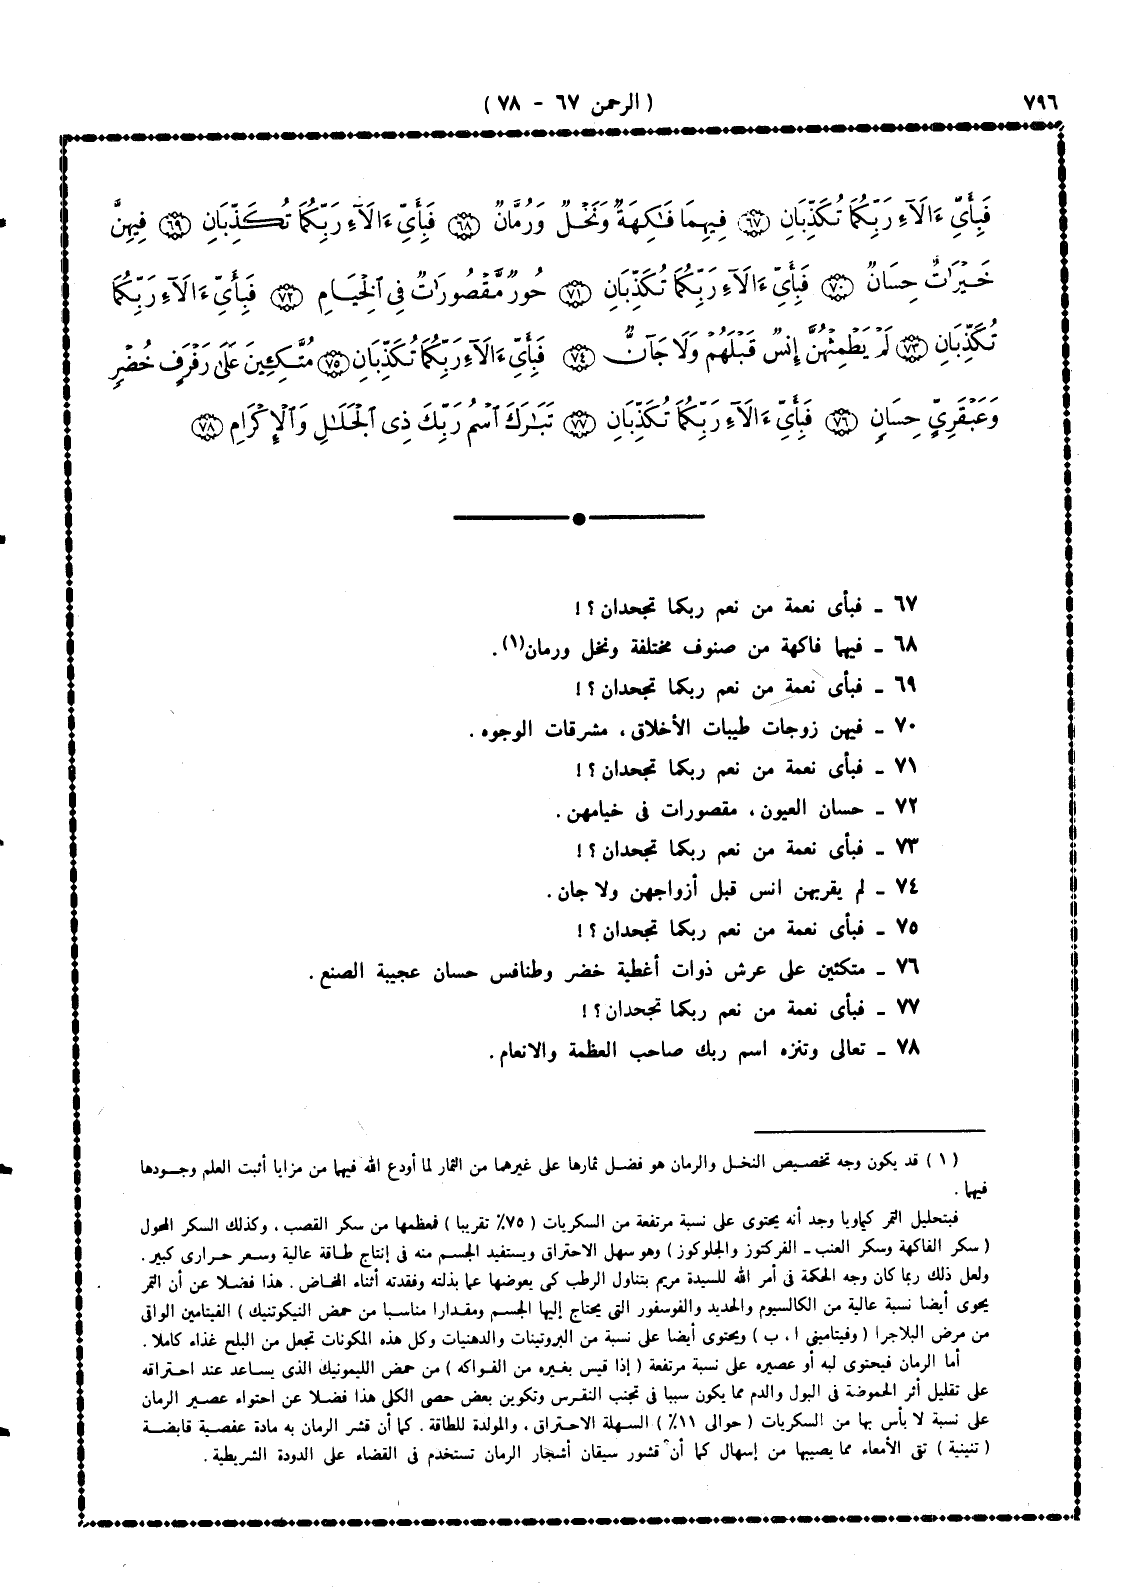 ٧٩٦
( الرحمن ٦٧ - ٧٨ )
فَبِأَيِّ ءَالَآءِ رَبِّكُمَا تُكَذِّبَانِ ﴿٦٧﴾ فِيهِمَا فَٰكِهَةٌ وَنَخْلٌ وَرُمَّانٌ ﴿٦٨﴾ فَبِأَيِّ ءَالَآءِ رَبِّكُمَا تُكَذِّبَانِ ﴿٦٩﴾ فِيهِنَّ
خَيْرَٰتٌ حِسَانٌ ﴿٧٠﴾ فَبِأَيِّ ءَالَآءِ رَبِّكُمَا تُكَذِّبَانِ ﴿٧١﴾ حُورٌ مَّقْصُورَٰتٌ فِي ٱلْخِيَامِ ﴿٧٢﴾ فَبِأَيِّ ءَالَآءِ رَبِّكُمَا
تُكَذِّبَانِ ﴿٧٣﴾ لَمْ يَطْمِثْهُنَّ إِنسٌ قَبْلَهُمْ وَلَا جَآنٌّ ﴿٧٤﴾ فَبِأَيِّ ءَالَآءِ رَبِّكُمَا تُكَذِّبَانِ ﴿٧٥﴾ مُتَّكِـِٔينَ عَلَىٰ رَفْرَفٍ خُضْرٍ
وَعَبْقَرِيٍّ حِسَانٍ ﴿٧٦﴾ فَبِأَيِّ ءَالَآءِ رَبِّكُمَا تُكَذِّبَانِ ﴿٧٧﴾ تَبَٰرَكَ ٱسْمُ رَبِّكَ ذِى ٱلْجَلَٰلِ وَٱلْإِكْرَامِ ﴿٧٨﴾
٦٧ ـ فبأى نعمة من نعم ربكما تجحدان ؟ !
٦٨ ـ فيهما فاكهة من صنوف مختلفة ونخل ورمان(١) .
٦٩ ـ فبأى نعمة من نعم ربكما تجحدان ؟ !
٧٠ ـ فيهن زوجات طيبات الأخلاق ، مشرقات الوجوه .
٧١ ـ فبأى نعمة من نعم ربكما تجحدان ؟ !
٧٢ ـ حسان العيون ، مقصورات فى خيامهن .
٧٣ ـ فبأى نعمة من نعم ربكما تجحدان ؟ !
٧٤ ـ لم يقربهن انس قبل أزواجهن ولا جان .
٧٥ ـ فبأى نعمة من نعم ربكما تجحدان ؟ !
٧٦ ـ متكئين على عرش ذوات أغطية خضر وطنافس حسان عجيبة الصنع .
٧٧ ـ فبأى نعمة من نعم ربكما تجحدان ؟ !
٧٨ ـ تعالى وتنزه اسم ربك صاحب العظمة والانعام .
( ١ ) قد يكون وجه تخصيص النخل والرمان هو فضل ثمارها على غيرهما من الثمار لما أودع الله فيهما من مزايا أثبت العلم وجودها
فيهما .
فبتحليل التمر كياويا وجد أنه يحتوى على نسبة مرتفعة من السكريات ( ٧٥٪ تقريبا ) فعظمها من سكر القصب ، وكذلك السكر المحول
( سكر الفاكهة وسكر العنب ـ الفركتوز والجلوكوز ) وهو سهل الاحتراق ويستفيد الجسم منه فى إنتاج طاقة عالية وسعر حرارى كبير .
ولعل ذلك ربما كان وجه الحكمة فى أمر الله للسيدة مريم بتناول الرطب كى يعوضها عما بذلته وفقدته أثناء المخاض . هذا فضلا عن أن التمر
يحوى أيضا نسبة عالية من الكالسيوم والحديد والفوسفور التى يحتاج إليها الجسم ومقدارا مناسبا من حمض النيكوتنيك ) الفيتامين الواقى
من مرض البلاجرا ( وفيتامينى ا ، ب ) ويحتوى أيضا على نسبة من البروتينات والدهنيات وكل هذه المكونات تجعل من البلح غذاء كاملا .
أما الرمان فيحتوى لبه أو عصيره على نسبة مرتفعة ( إذا قيس بغيره من الفواكه ) من حمض الليمونيك الذى يساعد عند احتراقه
على تقليل أثر الحموضة فى البول والدم مما يكون سببا فى تجنب النقرس وتكوين بعض حصى الكلى هذا فضلا عن احتواء عصير الرمان
على نسبة لا بأس بها من السكريات ( حوالى ١١٪ ) السهلة الاحتراق ، والمولدة للطاقة . كما أن قشر الرمان به مادة عفصية قابضة
( تنينية ) تقى الأمعاء مما يصيبها من إسهال كما أن قشور سيقان أشجار الرمان تستخدم فى القضاء على الدودة الشريطية .